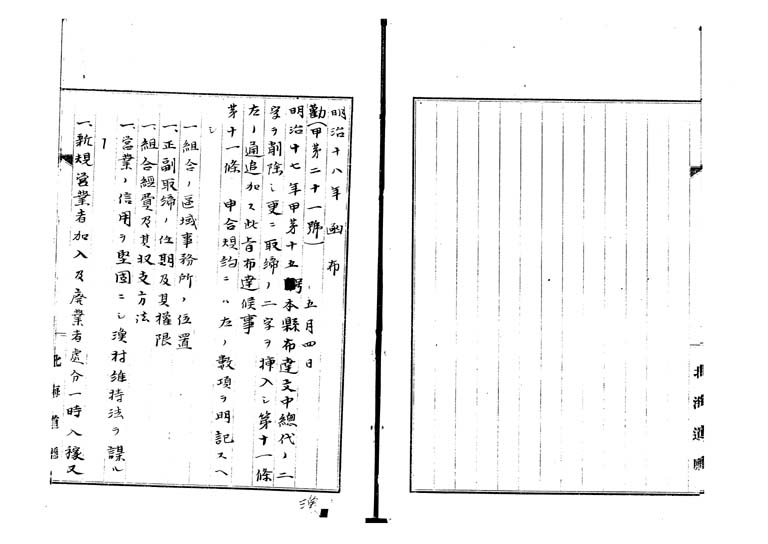 明治十八年 函布
勸(甲第二十一號) 五月四日
明治十七年甲第十五號本縣布達文中總代ノ二
字ヲ削除シ更ニ取締ノ二字ヲ挿入シ第十一條
左ノ通追加ス此旨布達候事
第十一條 申合規約ニハ左ノ數項ヲ明記スヘ
シ
一組合ノ區域事務所ノ位置
一、正副取締ノ任期及其權限
一、組合經費及其収支方法
一、營業ノ信用ヲ堅固ニシ漁村維持法ヲ謀ル
一、新規営業者加入及廃業者處分一時入稼又
北海道廳
北海道廳
漁